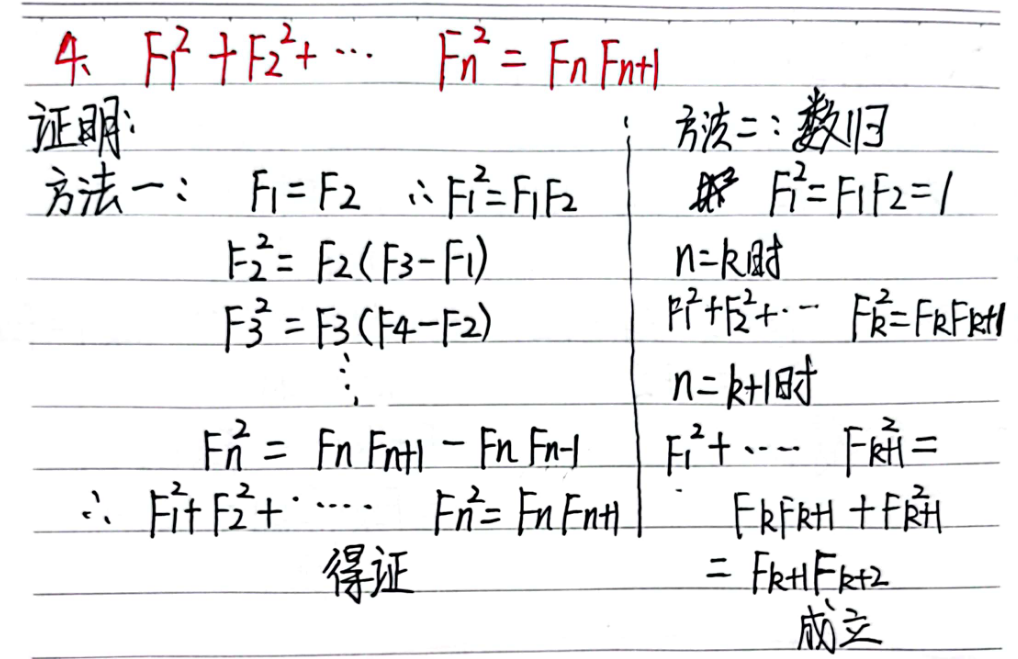 4、 F₁² + F₂² + ⋯ Fn² = Fn Fn+1
证明:
方法一: F₁ = F₂ ∴ F₁² = F₁F₂
F₂² = F₂(F₃-F₁)
F₃² = F₃(F₄-F₂)
⋮
Fn² = Fn Fn+1 - Fn Fn-1
∴ F₁² + F₂² + ⋯⋯ Fn² = Fn Fn+1
得证
方法二: 数归
F₁² = F₁F₂ = 1
n=k时
F₁² + F₂² + ⋯ Fk² = FkFk+1
n=k+1时
F₁² + ⋯⋯ Fk+1² =
FkFk+1 + Fk+1²
= Fk+1Fk+2
成立